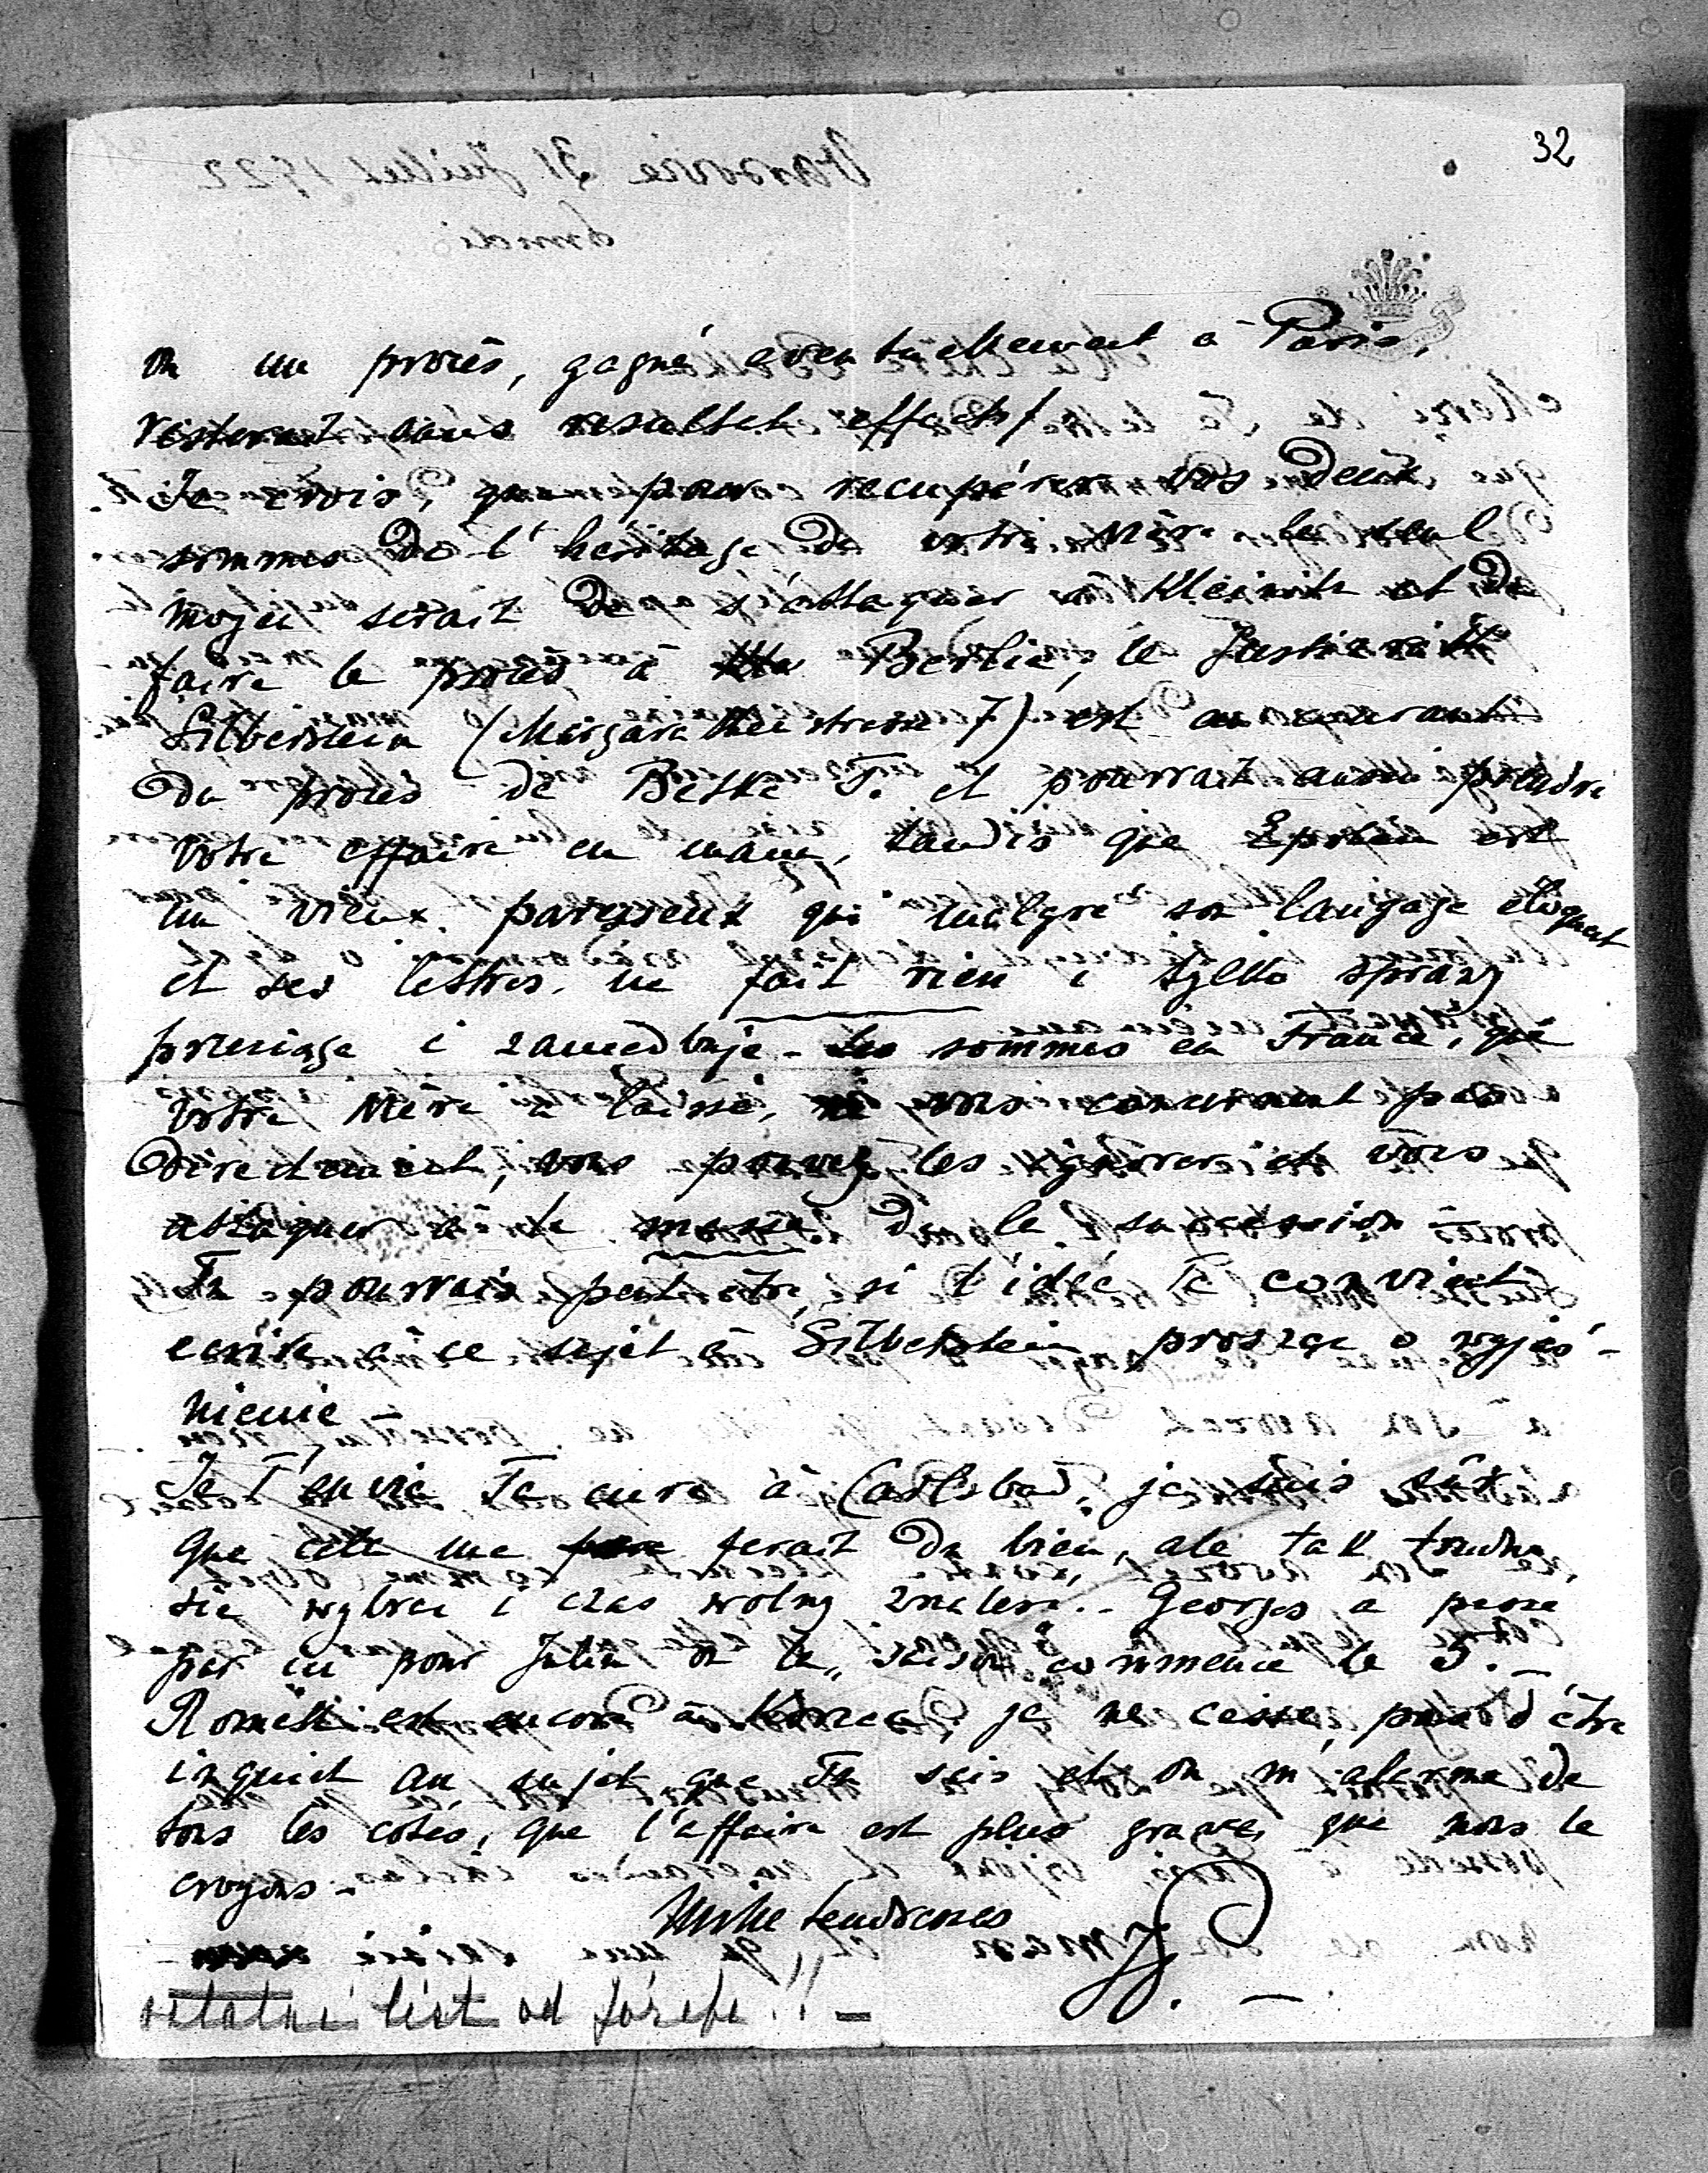 32
ou un procès, gagné eventuellement à Paris,
resterait sans resultat effectif
Je crois, que pour recupérer vos deux
sommes de l'heritage de votre Mère le seul
moyen serait de s'attaquer a Kleinitz et de
faire le procès à Berlin, le Justizrath
Silberstein (Margarethenstrasse 7) est au courant
du procès de Betka T. et pourrait aussi prendre
votre affaire en main, tandis que est
un vieux paresseux qui malgré son langage éloquent
et ses lettres ne fait rien i tylko sprawy
przeciąga i zaniedbuje - les sommes en France, que
votre Mère a laissé, ne vous concernent pas
directement, vous pouvez les ignorer et vous
attaquer à la masse de la succession -
Tu pourrais peut être, si l'idée Te convient
ecrire à ce sujet à Silberstein prosząc o wyjaś-
nienie -
Je T'envie Ta cure à Carlsbad, je suis sûr
que cela me ferait du bien, ale tak trudno
się wybrać i czas wolny znaleść.. Georges a passé
par ici pour où la "saison" commence le 5. -
est encore à je ne cesse pas d'être
inquiet au sujet que Tu sais et on m'alarme de
tous les cotés, que l'affaire est plus grave, que nous le
croyons -
Mille tendresses
J. -
ostatni list od Józefa!! -